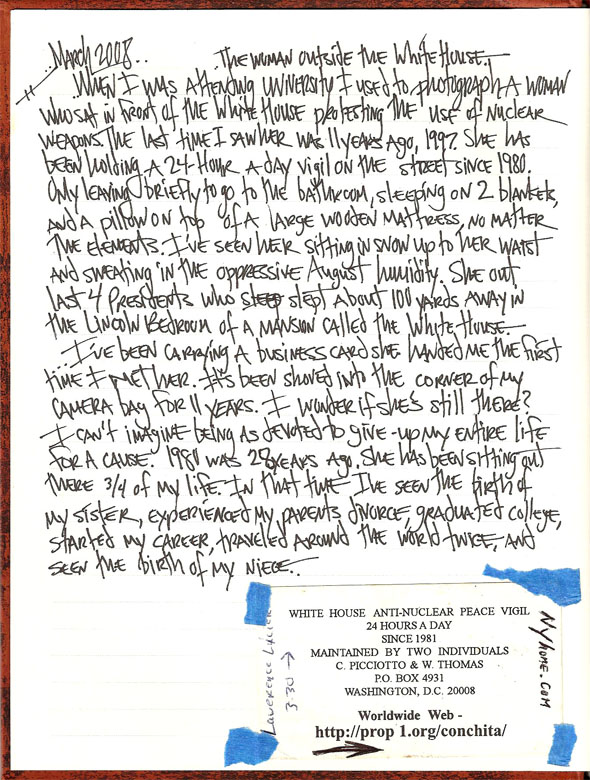 ..March 2008..
The woman outside the White House..
..When I was attending university I used to photograph a woman
who sat in front of the White House protesting the use of nuclear
weapons. The last time I saw her was 11 years ago, 1997. She has
been holding a 24-Hour a day vigil on the street since 1980.
Only leaving briefly to go to the bathroom, sleeping on 2 blankets,
and a pillow on top of a large wooden mattress, no matter
the elements. I've seen her sitting in snow up to her waist
and sweating in the oppressive August humidity. She out
last 4 Presidents who slept about 100 yards away in
the Lincoln Bedroom of a mansion called the White House..
...I've been carrying a business card she handed me the first
time I met her. It's been shoved into the corner of my
camera bag for 11 years. I wonder if she's still there?
I can't imagine being as devoted to give-up my entire life
for a cause. 1981 was 28 years ago. She has been sitting out
there 3/4 of my life. In that time I've seen the birth of
my sister, experienced my parents divorce, graduated college,
started my career, traveled around the world twice, and
seen the birth of my niece..
WHITE HOUSE ANTI-NUCLEAR PEACE VIGIL
24 HOURS A DAY
SINCE 1981
MAINTAINED BY TWO INDIVIDUALS
C. PICCIOTTO & W. THOMAS
P.O. BOX 4931
WASHINGTON, D.C. 20008
Worldwide Web -
http://prop 1.org/conchita/
Lawerence
3:30 →
Nyhome.com